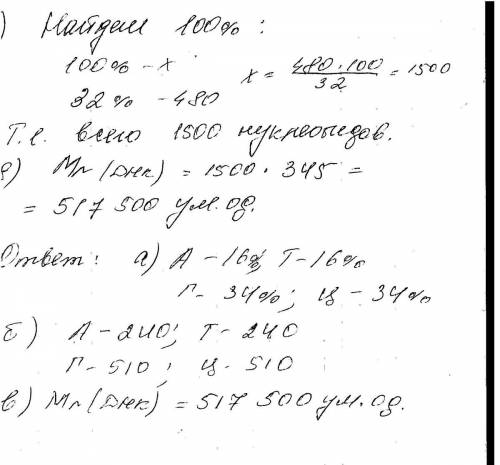 ) Найдем 100% :
100% - x
32% - 480
x = 480 · 100 / 32 = 1500
Т.е. всего 1500 нуклеотидов.
) Mr (ДНК) = 1500 · 345 =
= 517 500 у.м.од.
Ответ: а) А - 16%, Т - 16%
Г - 34%; Ц - 34%
б) А - 240; Т - 240
Г - 510; Ц - 510
в) Mr (ДНК) = 517 500 у.м.од.